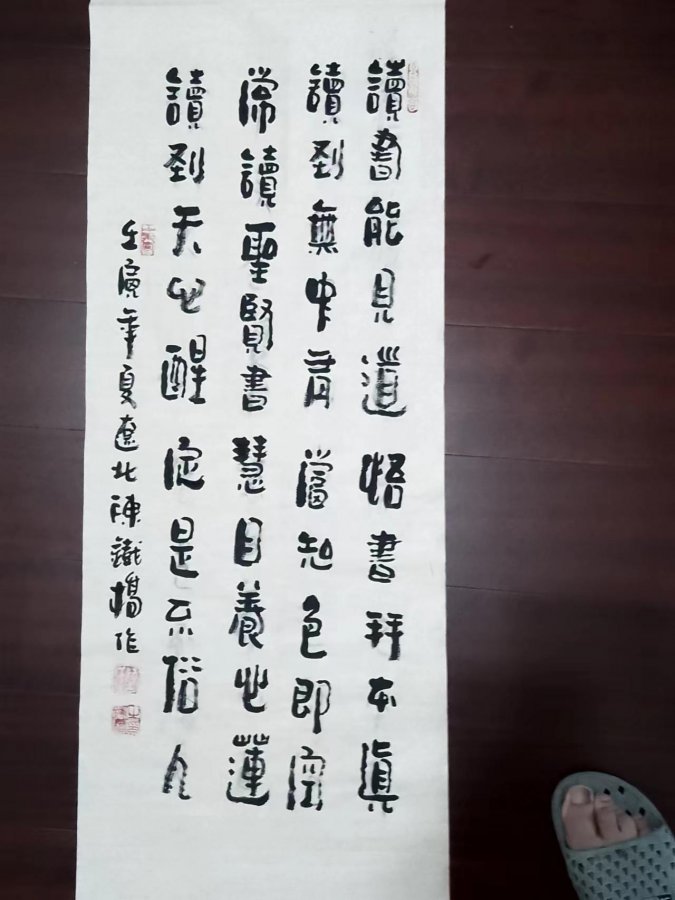 讀書能見道悟書拜本真
讀到無中有當知色即空
常讀聖賢書慧目養心蓮
讀到天心醒定是不俗人
壬寅年夏遼北陳鐵楊作